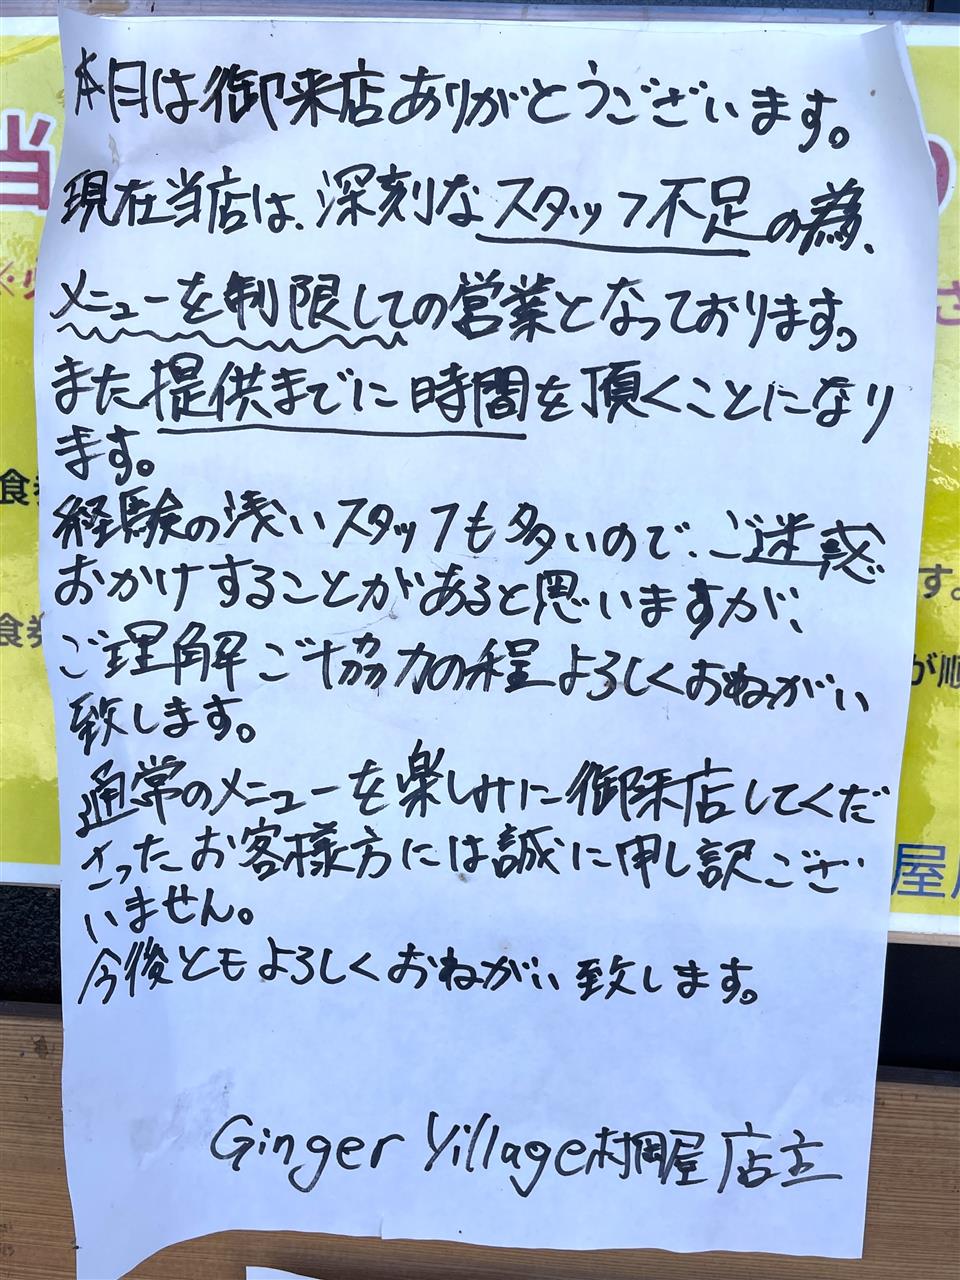 本日は御来店ありがとうございます。
現在当店は、深刻なスタッフ不足の為、
メニューを制限しての営業となっております。
また提供までに時間を頂くことになり
ます。
経験の浅いスタッフも多いので、ご迷惑
おかけすることがあると思いますが、
ご理解ご協力の程よろしくおねがい
致します。
通常のメニューを楽しみに御来店してくだ
さったお客様方には誠に申し訳ござ
いません。
今後ともよろしくおねがい致します。
Ginger Village村岡屋 店主
当
食券
す。
食券
が順
屋